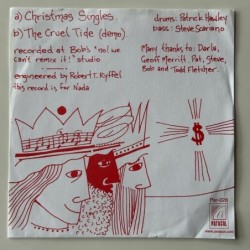 a) Christmas Singles
b) The Cruel Tide (demo)
recorded at Bob's "no! we
can't remix it!" studio
engineered by Robert T. Kyffel
this record is for Nada
drums: Patrick Hawley
bass: Steve Scariano
Many thanks to: Darla,
Geoff Merritt, Pat, Steve,
Bob and Todd Fletcher.
$
PARASOL